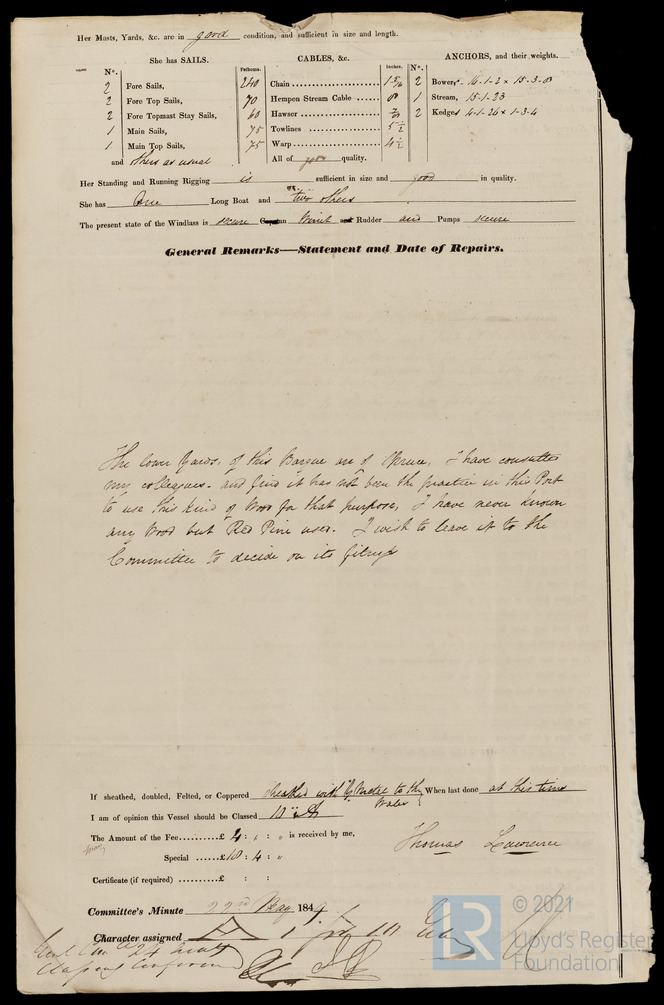 Her Masts, Yards, &c. are in good condition, and sufficient in size and length.
She has SAILS.
CABLES, &c.
ANCHORS, and their weights.
Nº.
Fathoms.
Inches.
Nº.
2 Fore Sails, 240 Chain 1 5/16 2 Bowers 16-1-2 x 15-3-0
2 Fore Top Sails, 70 Hempen Stream Cable 8 1 Stream, 15-1-23
2 Fore Topmast Stay Sails, 60 Hawser 2 Kedges 4-1-26 x 1-3-4
1 Main Sails, 75 Towlines 5 1/2
1 Main Top Sails, 75 Warp 4 1/2
and others as usual All of good quality.
Her Standing and Running Rigging is sufficient in size and good in quality.
She has One Long Boat and two others
The present state of the Windlass is secure Capstan Winch and Rudder and Pumps secure
General Remarks—Statement and Date of Repairs.
The lower Yards, of this Barque are of Spruce, I have consulted
my colleagues. and find it has not been the practice in this Port
to use this kind of Wood for that purpose, I have never known
any Wood but Red Pine used. I wish to leave it to the
Committee to decide on its fitness
If sheathed, doubled, Felted, or Coppered sheathed with Y Metal to the Wales When last done at this time
I am of opinion this Vessel should be Classed 10
The Amount of the Fee £ 4 : : is received by me,
Thomas Lawrence
Special £10 : 4 :
Certificate (if required) £ : :
Committee's Minute 22nd May 1849
Character assigned
© 2021
LR
Lloyd's Register
Foundation